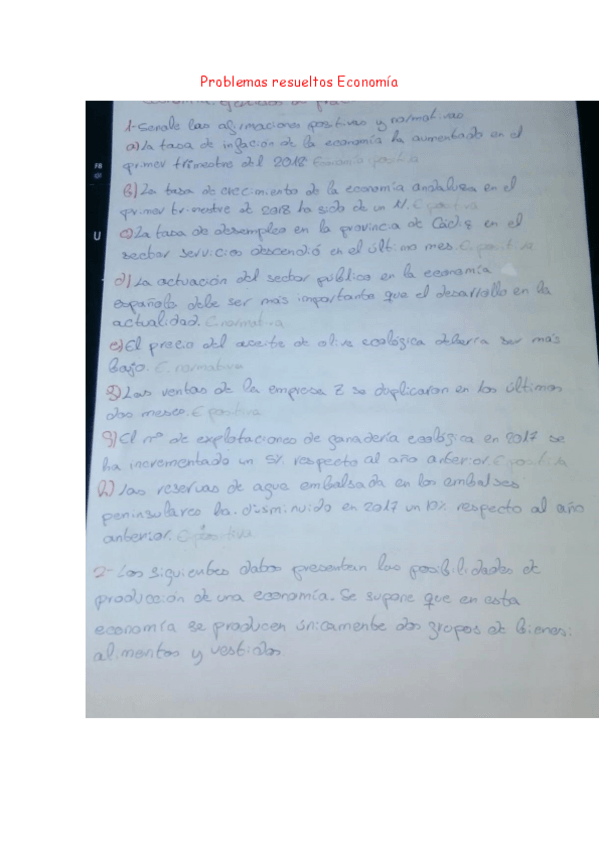 Problemas resueltos Economía
1-Señale las afirmaciones positivas y normativas
a) La tasa de inflación de la economía ha aumentado en el
primer trimestre del 2018 Economía positiva
B) La tasa de crecimiento de la economía andaluza en el
primer trimestre de 2018 ha sido de un 1%. E positiva
c) La tasa de desempleo en la provincia de Cádiz en el
sector servicios descendió en el último mes. E positiva
d) La actuación del sector público en la economía
española debe ser más importante que el desarrollo en la
actualidad. E normativa
e) El precio del aceite de oliva ecológica debería ser más
bajo. E. normativa
Las ventas de la empresa Z se duplicaron en los últimos
dos meses. E positiva
g) El nº de explotaciones de ganadería ecológica en 2017 se
ha incrementado un 5% respecto al año anterior. E positiva
h) Las reservas de agua embalsada en los embalses
peninsulares ha disminuido en 2017 un 10% respecto al año
anterior. E positiva
2- Los siguientes datos presentan las posibilidades de
producción de una economía. Se supone que en esta
economía se producen únicamente dos grupos de bienes:
alimentos y vestidos
FB
U